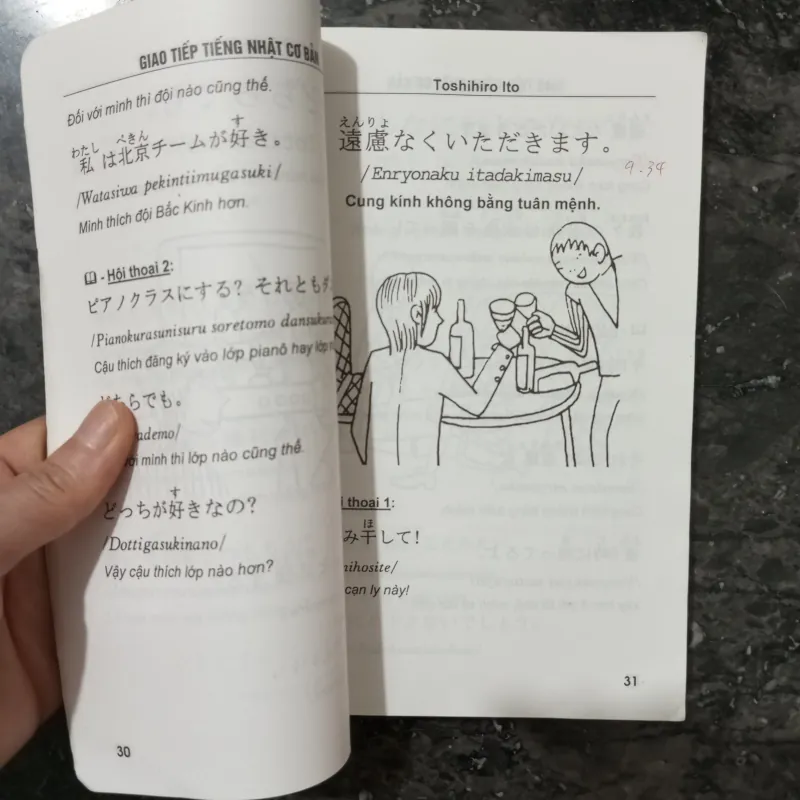 GIAO TIẾP TIẾNG NHẬT CƠ BẢN
Đối với mình thì đội nào cũng thế.
わたし ぺきん す
私は北京チームが好き。
/Watasiwa pekintiimugasuki/
Mình thích đội Bắc Kinh hơn.
- Hội thoại 2:
ピアノクラスにする? それとも
/Pianokurasunisuru soretomo
Cậu thích đăng ký vào lớp pianô hay lớp
らでも。
ademo/
mình thì lớp nào cũng thế.
す
どっちが好きなの?
/Dottigasukinano/
Vậy cậu thích lớp nào hơn?
30
Toshihiro Ito
えんりょ
遠慮なくいただきます。
/Enryonaku itadakimasu/
9.34
Cung kính không bằng tuân mệnh.
thoại 1:
ほ
み干して!
hihosite/
cạn ly này!
31